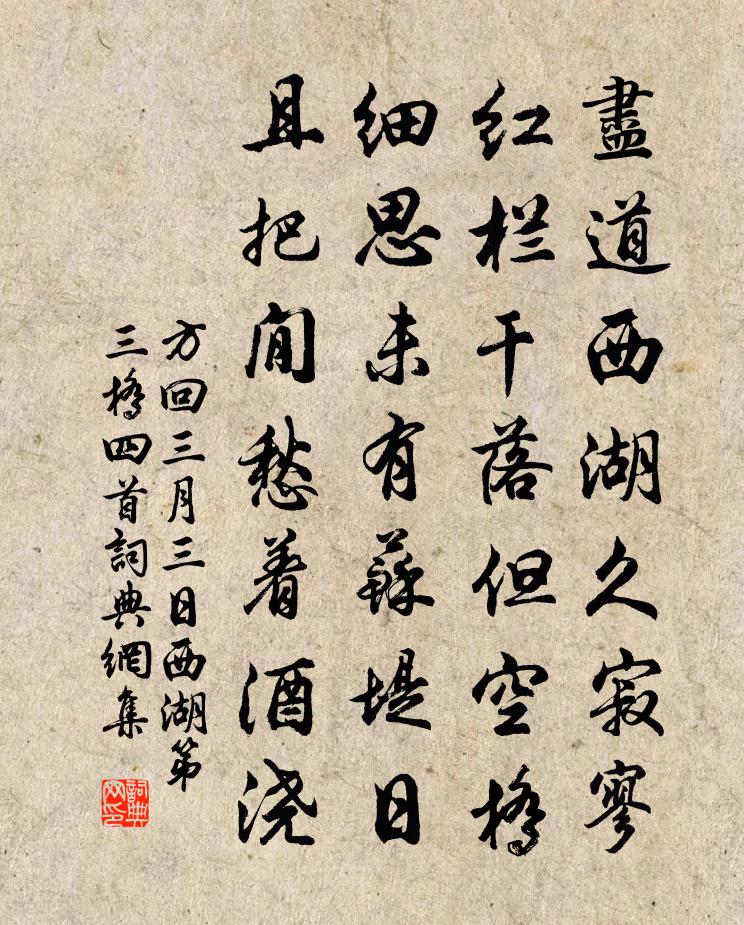 盡道西湖久寂寥
红栏干落但空橋
细思未有蘇堤日
且把閒愁着酒浇
方回三月三日西湖第
三橋四首詞典網集
詞典網印